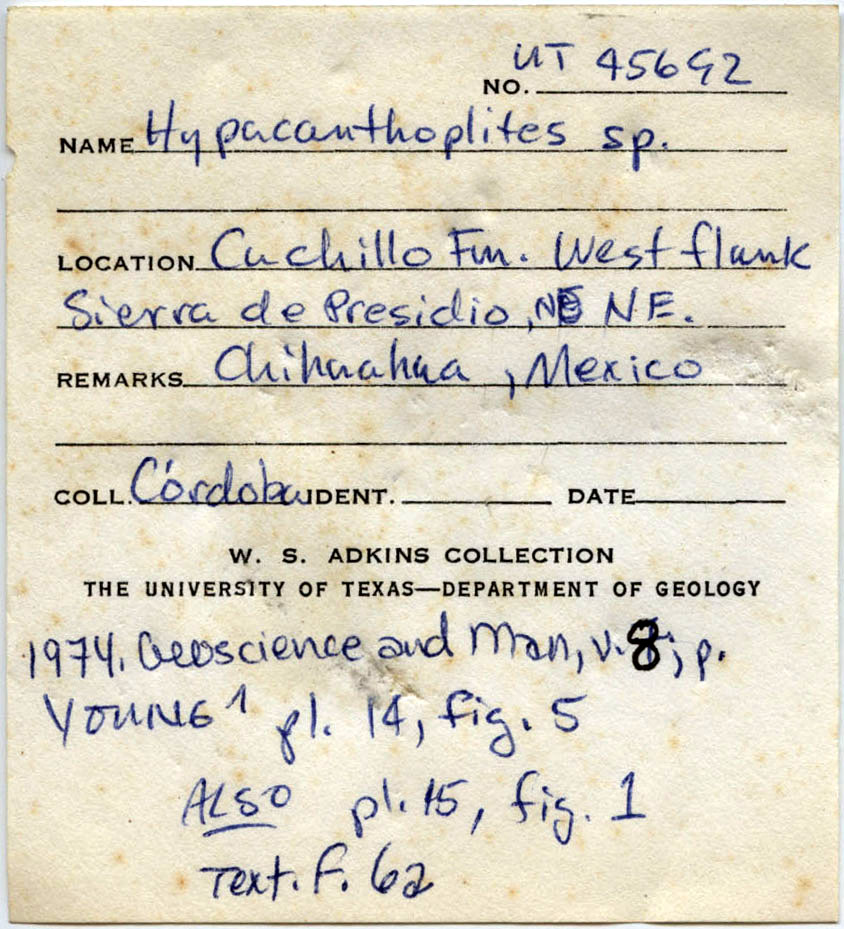 NO. UT 45692
NAME Hypacanthoplites sp.
LOCATION Cuchillo Fm. West flank
Sierra de Presidio, NE.
REMARKS Chihuahua, Mexico
COLL. Córdoba IDENT. DATE
W. S. ADKINS COLLECTION
THE UNIVERSITY OF TEXAS—DEPARTMENT OF GEOLOGY
1974. Geoscience and Man, v. 8, p.
YOUNG ^ pl. 14, fig. 5
ALSO pl. 15, fig. 1
Text. f. 6a